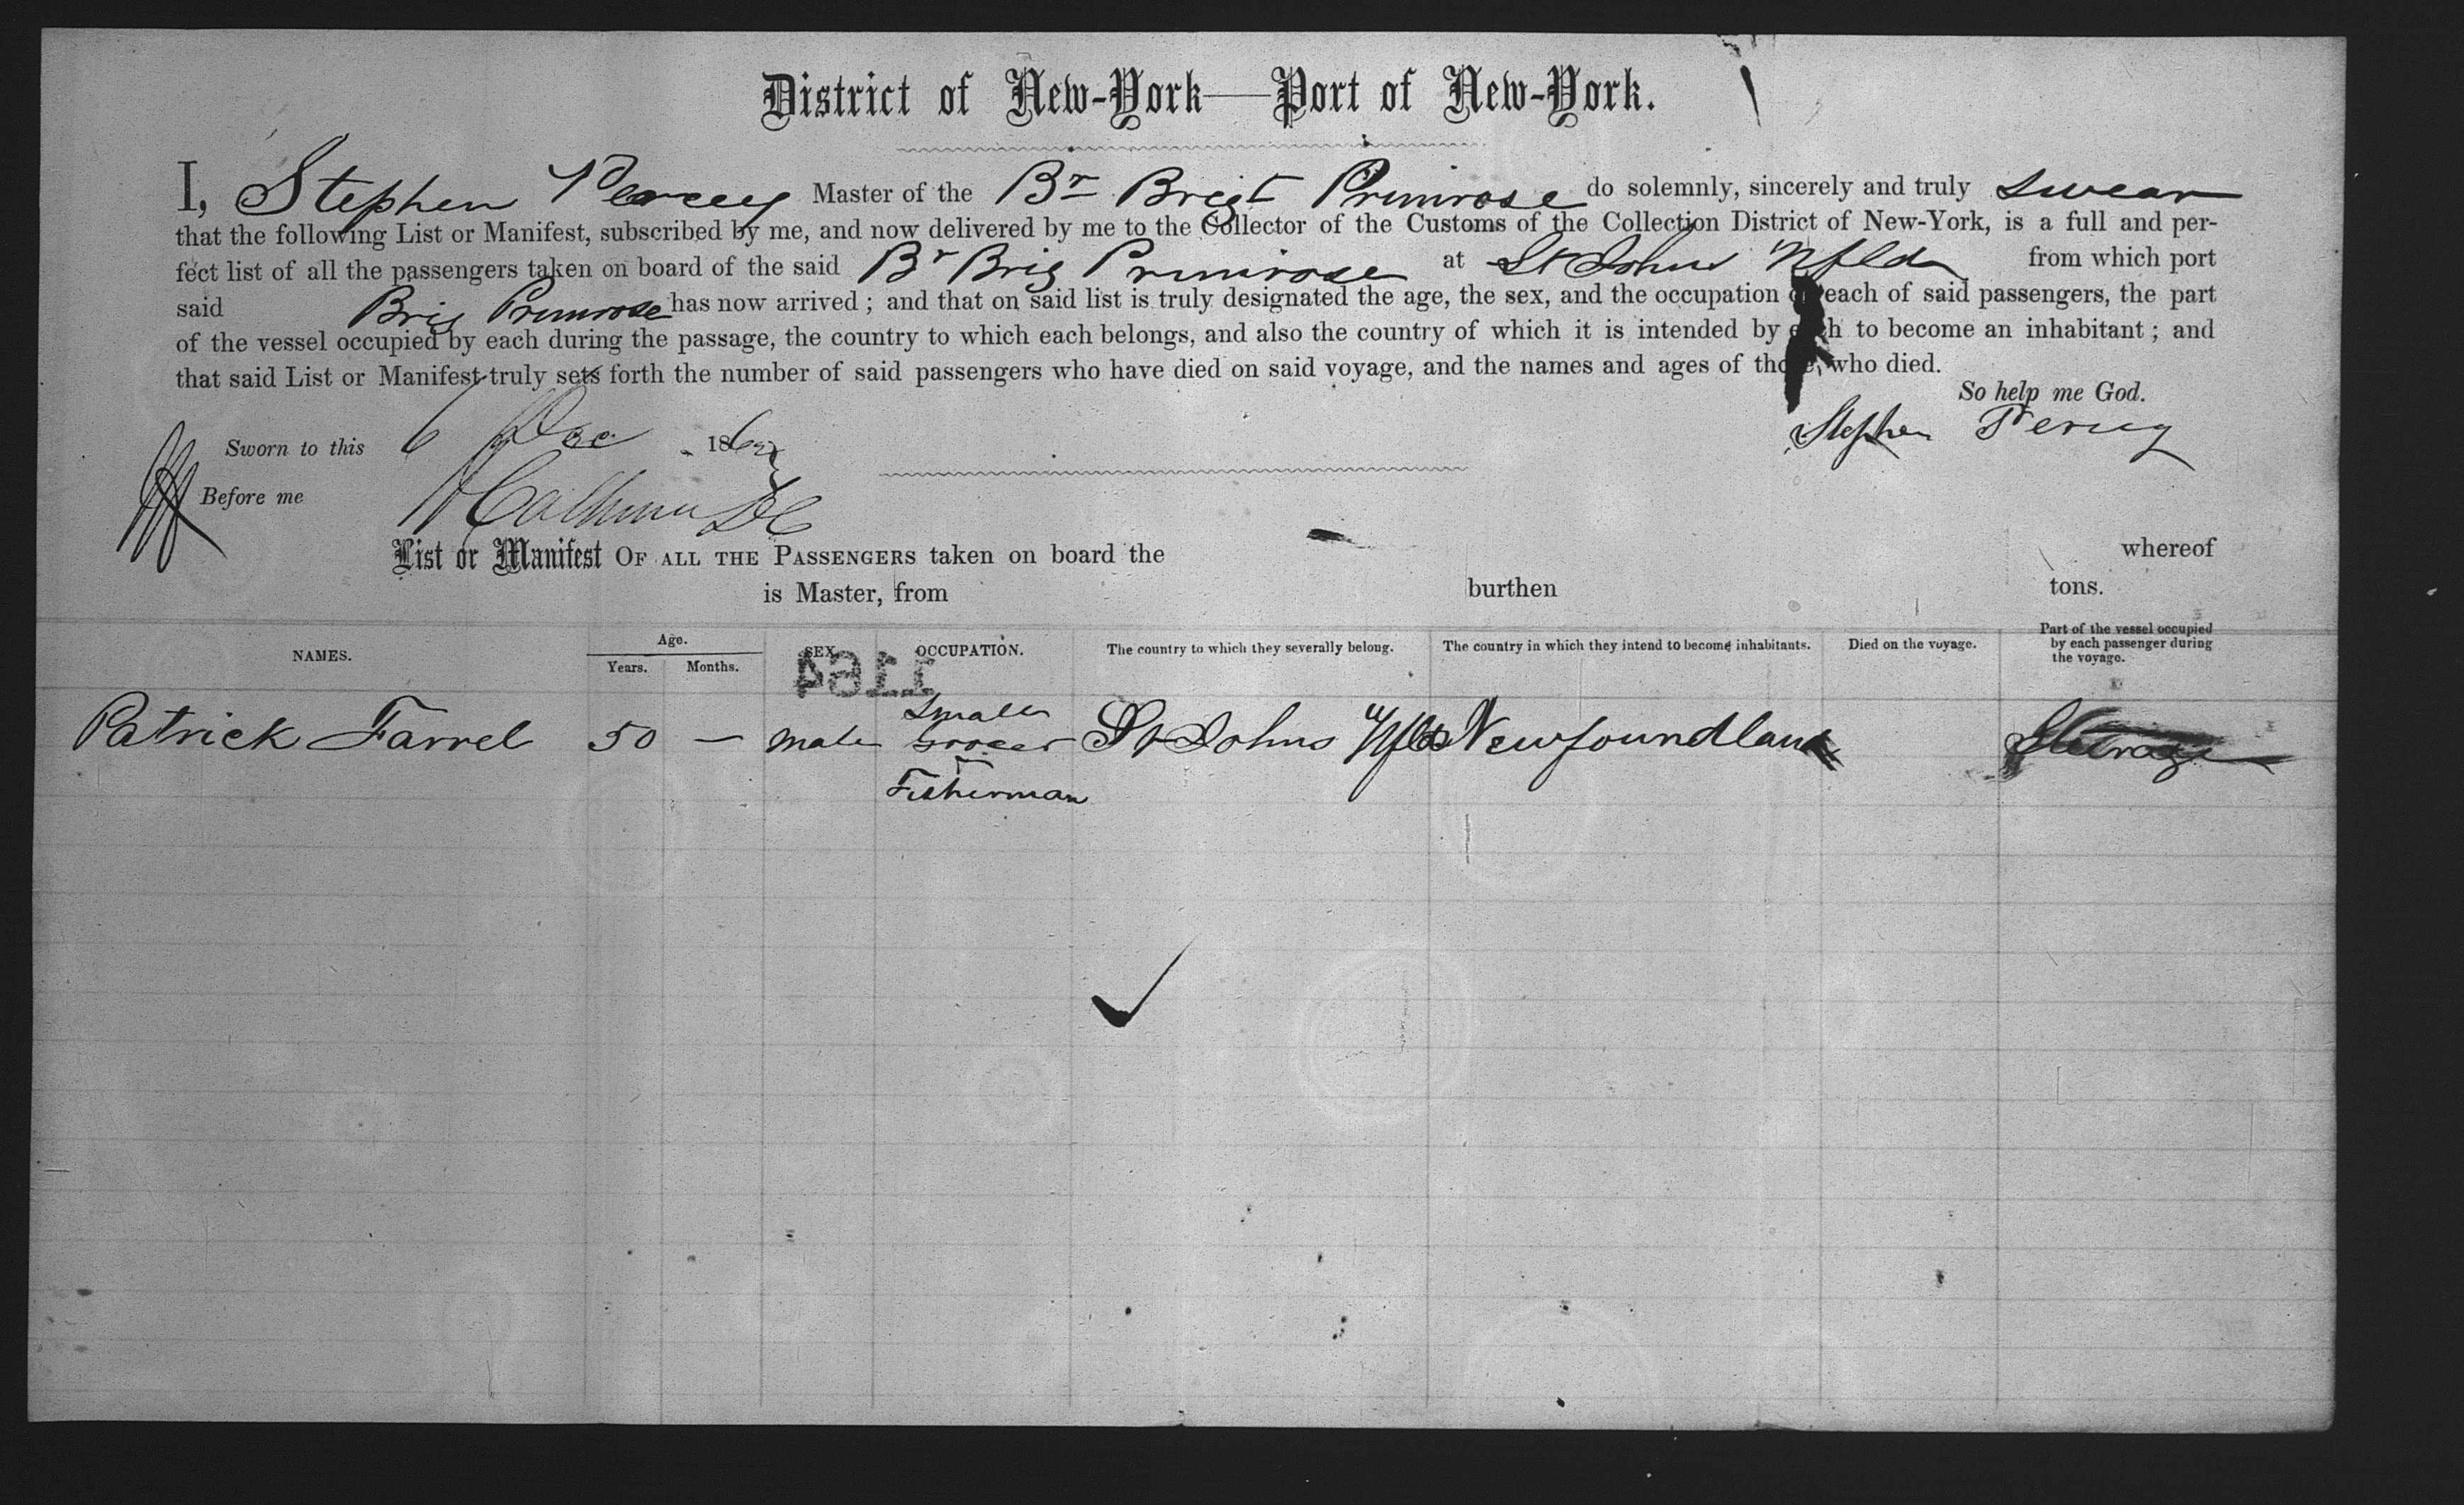 District of New-York—Port of New-York.
I, Stephen Percey Master of the Br Brigt Primrose do solemnly, sincerely and truly swear
that the following List or Manifest, subscribed by me, and now delivered by me to the Collector of the Customs of the Collection District of New-York, is a full and per-
fect list of all the passengers taken on board of the said Br Brig Primrose at St Johns Nfld from which port
said Brig Primrose has now arrived; and that on said list is truly designated the age, the sex, and the occupation of each of said passengers, the part
of the vessel occupied by each during the passage, the country to which each belongs, and also the country of which it is intended by each to become an inhabitant; and
that said List or Manifest truly sets forth the number of said passengers who have died on said voyage, and the names and ages of those who died.
So help me God.
Sworn to this 6 Dec 186
Stephen Percey
Before me Calhoun DC
List or Manifest OF ALL THE PASSENGERS taken on board the whereof
is Master, from burthen tons.
NAMES. Age. Years. Months. SEX. OCCUPATION. The country to which they severally belong. The country in which they intend to become inhabitants. Died on the voyage. Part of the vessel occupied by each passenger during the voyage.
1164
Patrick Farrel 50 — male Small Grocer St Johns Nfld Newfoundland Steerage
Fisherman